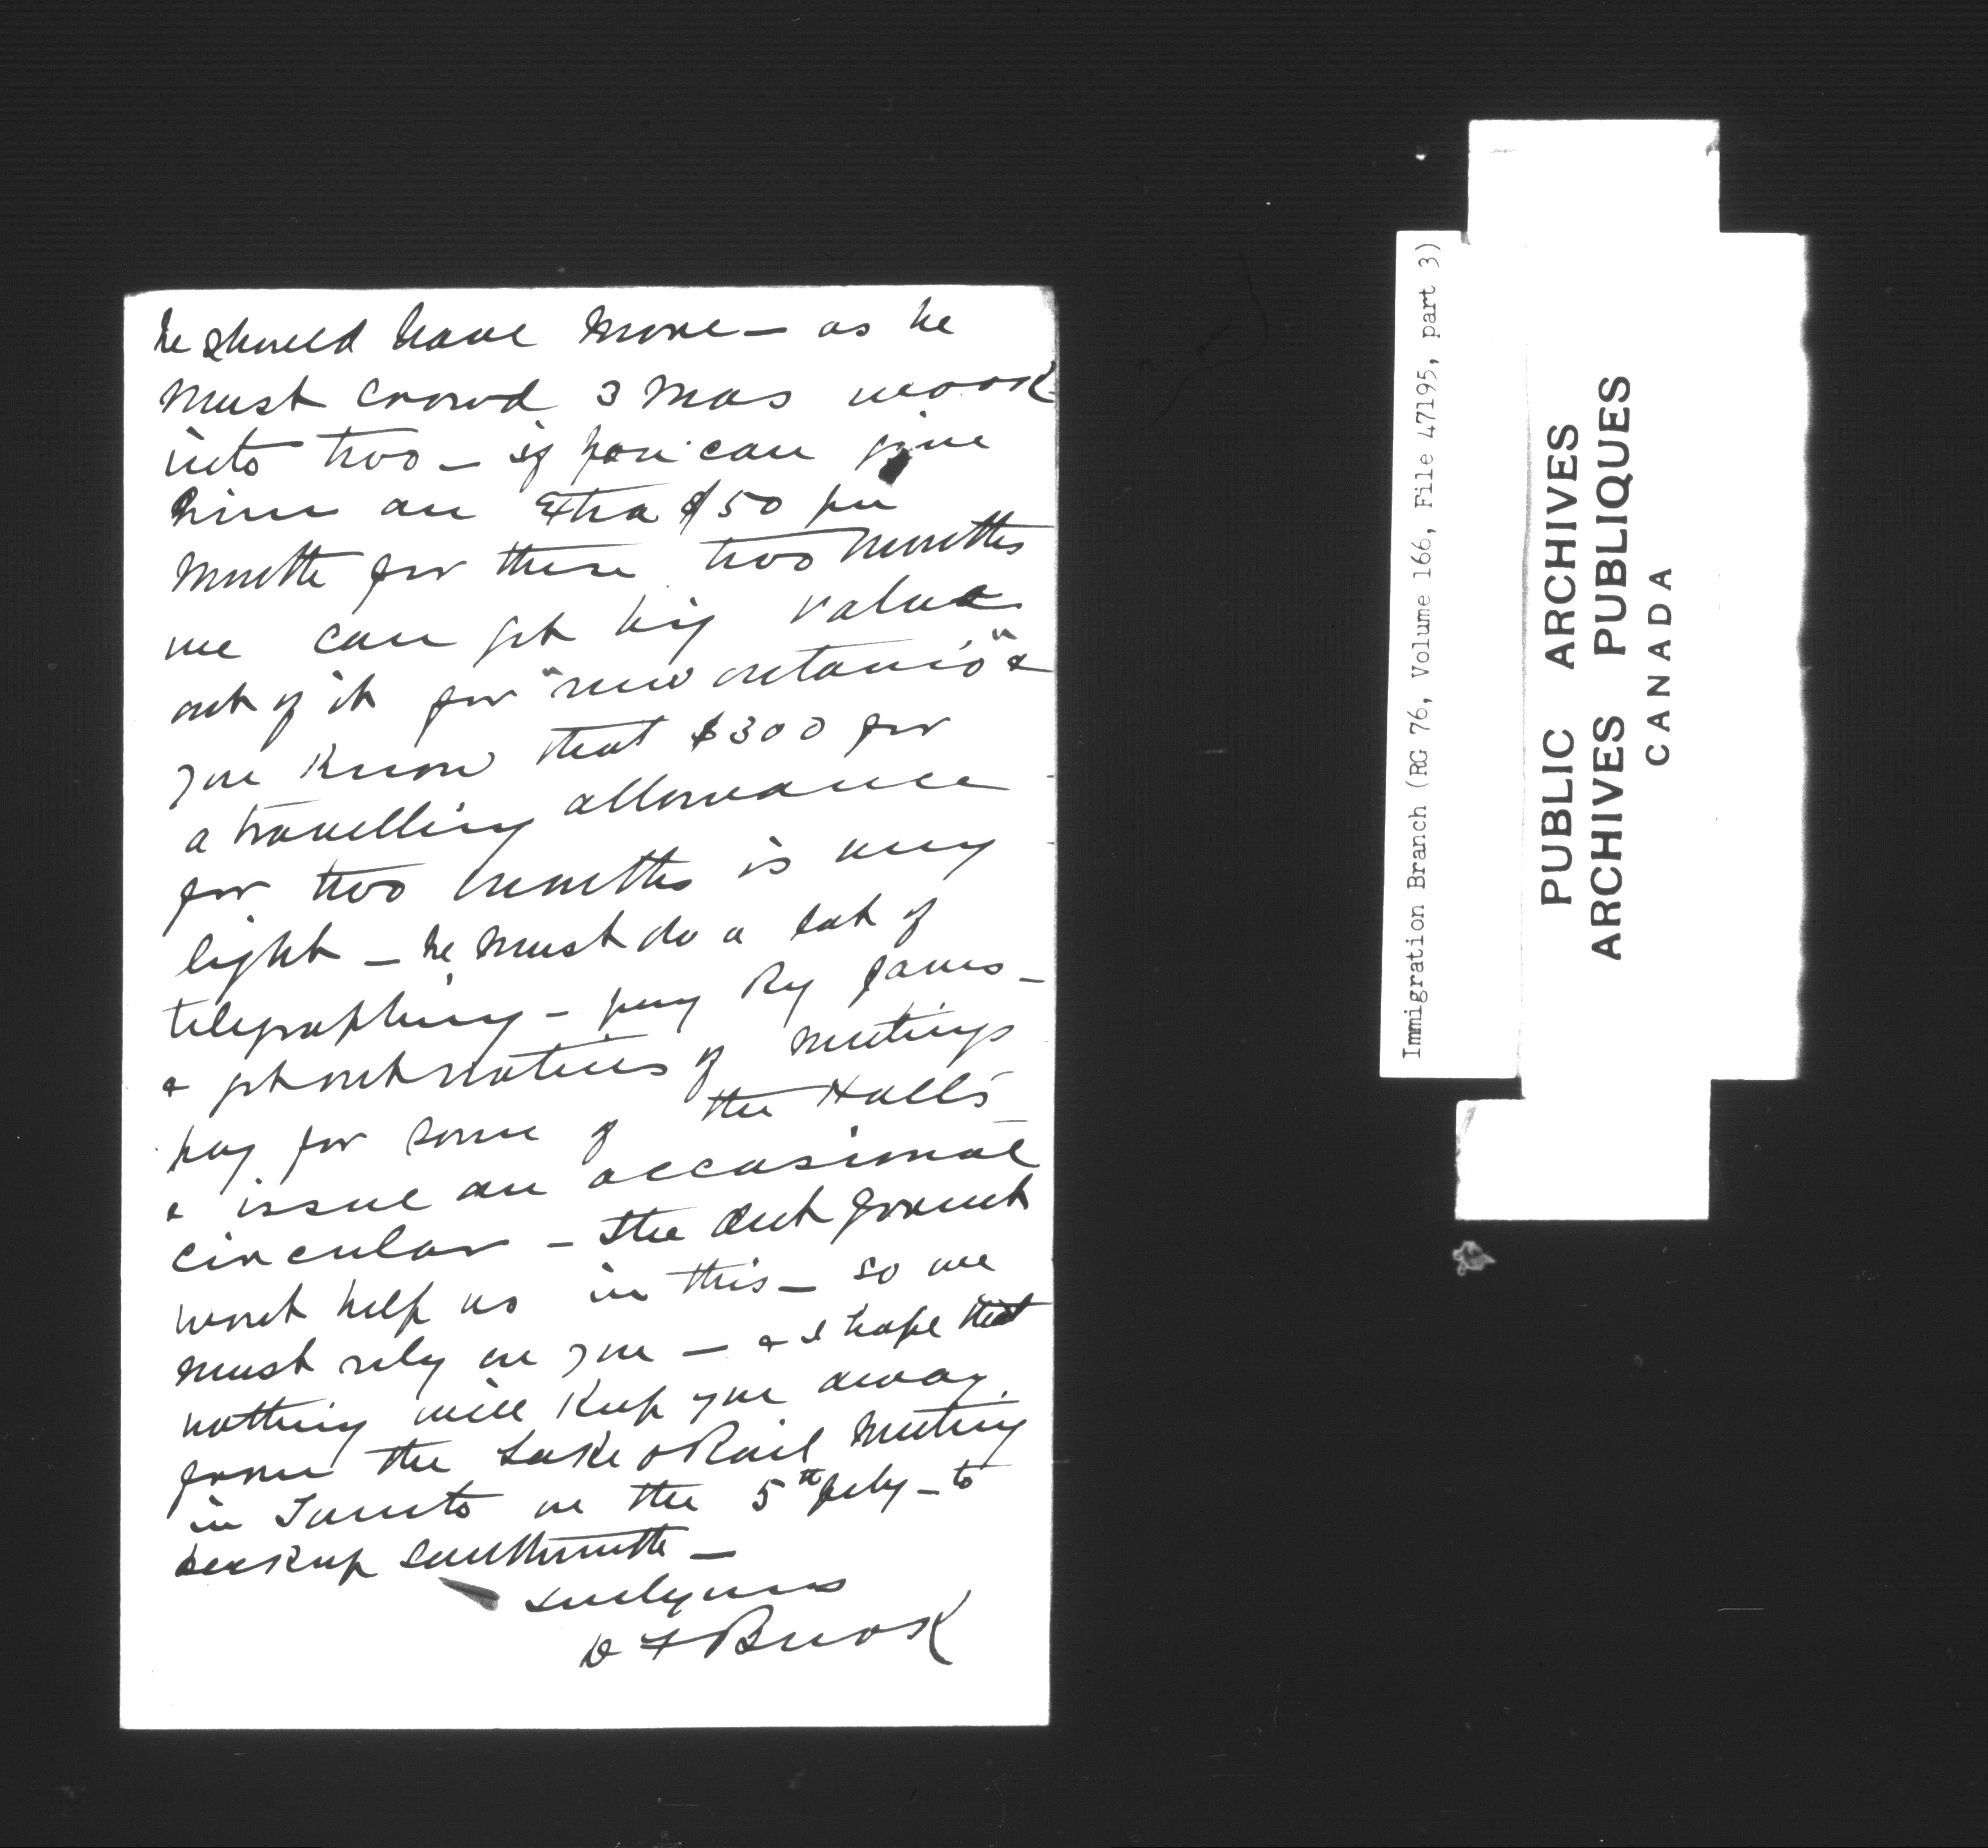 he should have more — as he
must crowd 3 mos work
into two — if you can give
him an Extra $50 per
month for these two months
we can get big value
out of it for "new ontario" &
you know that $300 for
a travelling allowance
for two months is very
light — he must do a lot of
telegraphing — pay Ry fares —
& get out notices of meetings
pay for some of the Halls
& issue an occasional
circular — The Ont Govmnt
wont help us in this — so we
must rely on you — & I hope that
nothing will keep you away
from the Lake & Rail meeting
in Toronto on the 5th July — to
back up Southworth —
truly yours
D F Burk
Immigration Branch (RG 76, Volume 166, File 47195, part 3)
PUBLIC ARCHIVES
ARCHIVES PUBLIQUES
CANADA